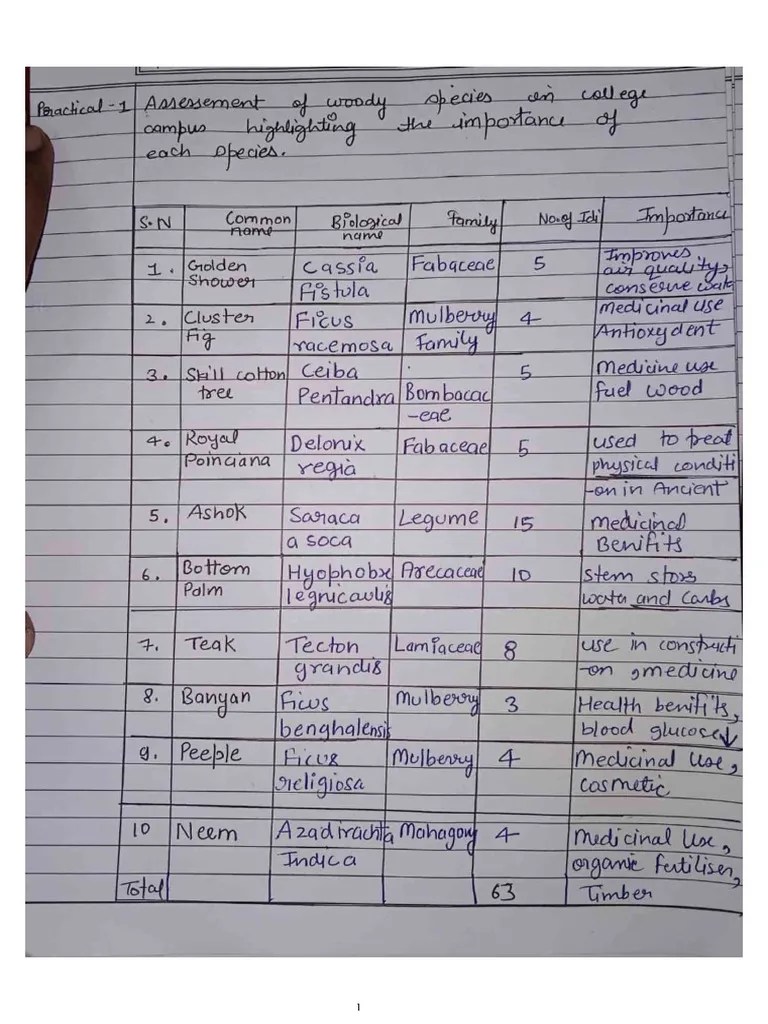 Practical-1 Assessement of woody species in college
campus highlighting the importance of
each species.
S.N Common name Biological name Family No. of Idi Importance
1. Golden Shower Cassia fistula Fabaceae 5 Improves air quality, conserve wate
2. Cluster Fig Ficus racemosa Mulberry Family 4 Medicinal use Antioxydent
3. Skill cotton tree Ceiba Pentandra Bombacac-eae 5 Medicine use fuel wood
4. Royal Poinciana Delonix regia Fabaceae 5 used to treat physical conditi-on in Ancient
5. Ashok Saraca asoca Legume 15 medicinal Benifits
6. Bottom Palm Hyophobe legnicaulis Arecaceae 10 Stem stors wata and carbs
7. Teak Tecton grandis Lamiaceae 8 use in constructi-on, medicine
8. Banyan Ficus benghalensis Mulberry 3 Health benifits, blood glucose↓
9. Peeple Ficus religiosa Mulberry 4 Medicinal Use, cosmetic
10 Neem Azadirachta Indica Mahagony 4 Medicinal Use, organic fertiliser,
Total 63 Timber
1